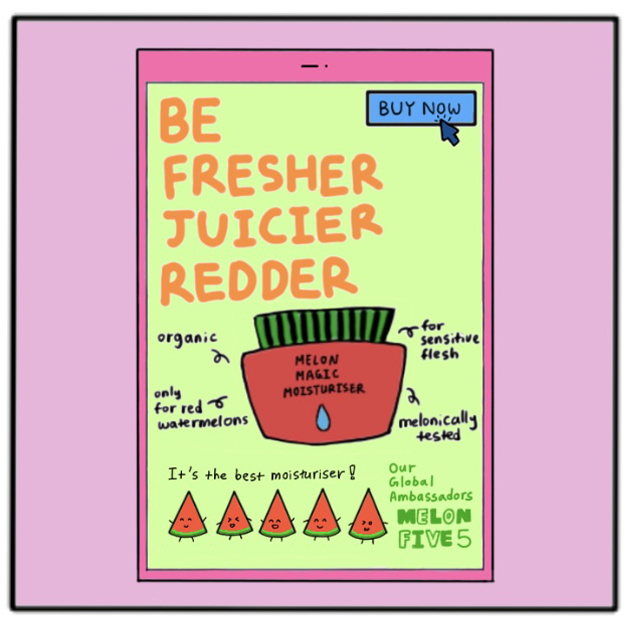 BUY NOW
BE
FRESHER
JUICIER
REDDER
organic
for
sensitive
flesh
MELON
MAGIC
MOISTURISER
only
for red
watermelons
melonically
tested
It's the best moisturiser!
Our
Global
Ambassadors
MELON
FIVE5